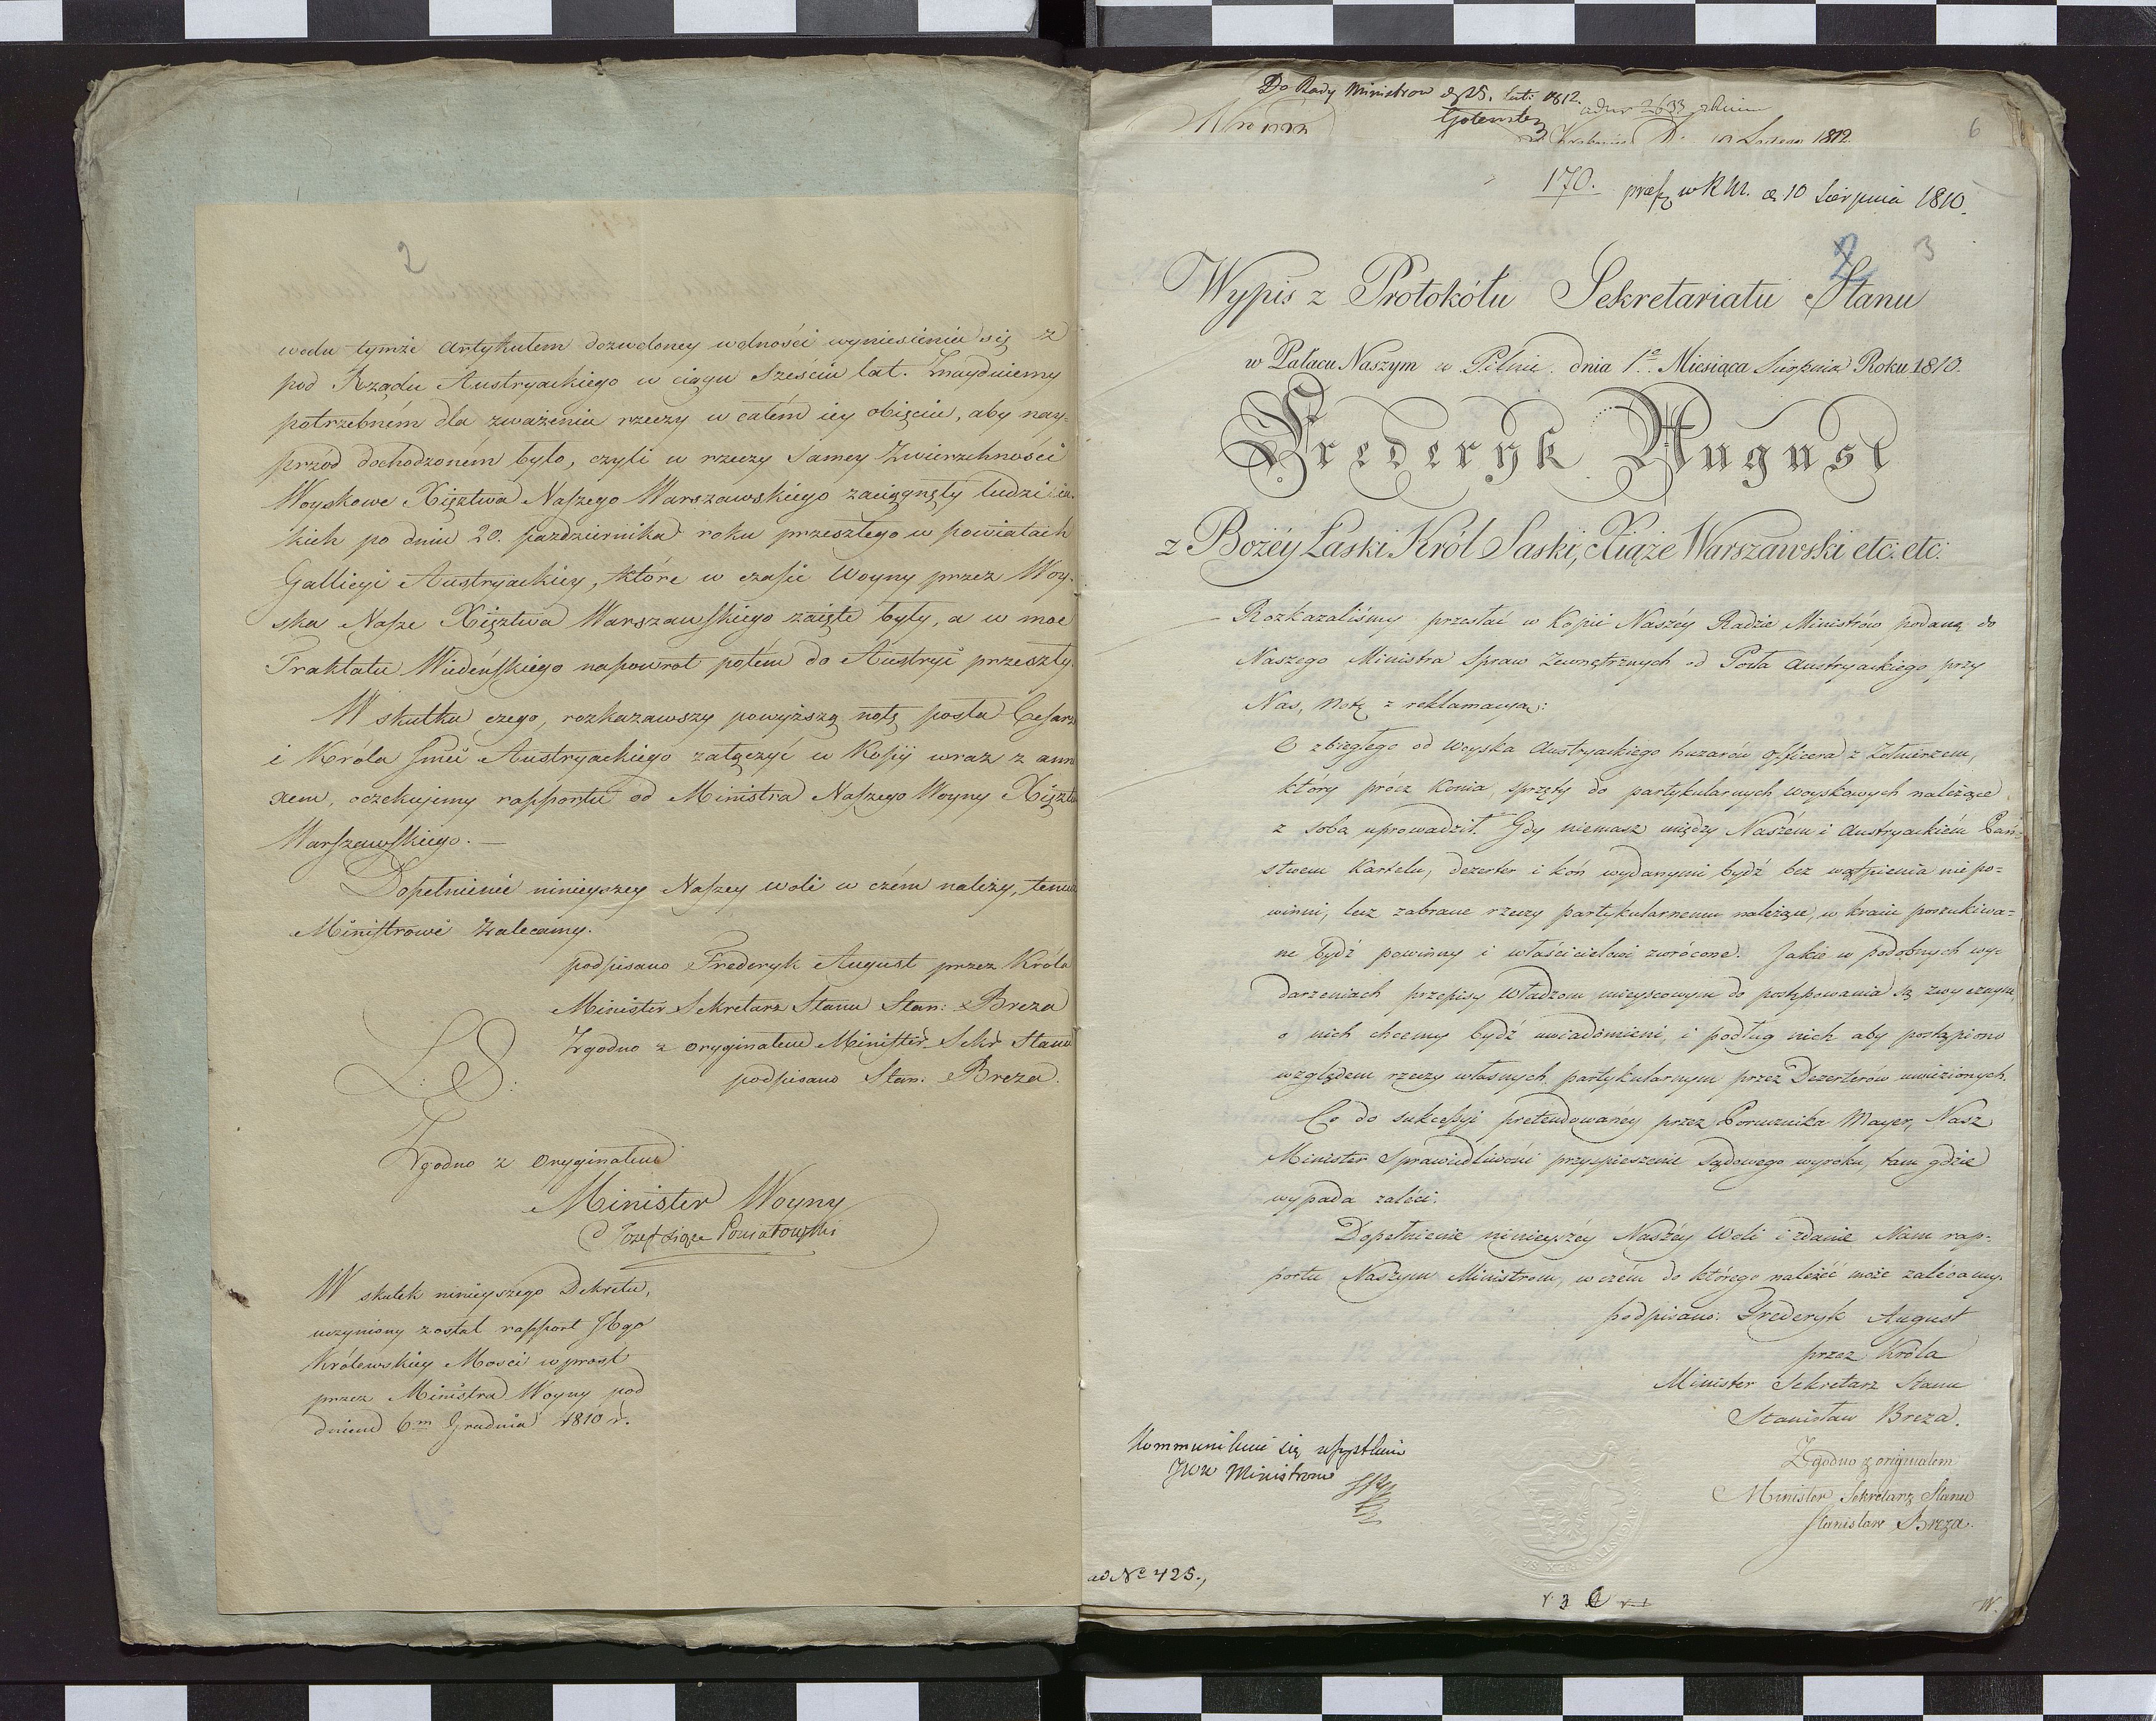 2
wodu tymże artykułem dozwoloney wolności wyniesienia się z
pod Rządu Austryackiego w ciągu sześciu lat. Znayduiemy
potrzebném dla zważenia rzeczy w całém iey obięciu, aby nay-
przód dochodzoném było, czyli w rzeczy samey Zwierzchności
Woyskowe Xięztwa Naszego Warszawskiego zaciągnęły ludzi ia-
kich po dniu 20. października roku przeszłego w powiatach
Gallicyi Austryackiey, które w czasie Woyny przez Woy-
ska Nasze Xięztwa Warszawskiego zaięte były, a w moc
Traktatu Wiedeńskiego napowrot potém do Austryi przeszły.
W skutku czego, rozkazawszy powyższą notę posła Cesarza
i Króla Jmci Austryackiego załączyć w Kopij wraz z anne
xem, oczekujemy rapportu od Ministra Naszego Woyny Xięztwa
Warszawskiego. —
Dopełnienie ninieyszey Naszey woli w czém należy, temuż
Ministrowi zalecamy.
podpisano Frederyk August przez Króla
Minister Sekretarz Stanu Stan: Breza
Zgodno z oryginałem Minister Sekr Stanu
podpisano Stan. Breza.
L: S:
Zgodno z Oryginałem
Minister Woyny
Józef Xiąże Poniatowski
W skutek ninieyszego Dekretu,
uczyniony został rapport JKgo
Królewskiey Mości wprost
przez Ministra Woyny pod
dniem 6m Grudnia 1810 r.
Do Rady Ministrow d. 25. Lut: 1812.
ad nr 2633
Lutego 1812.
6
170. praes. w R M. d. 10 Sierpnia 1810.
2 3
Wypis z Protokółu Sekretariatu Stanu
w Pałacu Naszym w Pilnic. dnia 1o Miesiąca Sierpnia Roku 1810.
Frederyk August
z Bożéy Łaski Król Saski, Xiąże Warszawski etc: etc:
Rozkazaliśmy przesłać w kopii Naszéy Radzie Ministrów podaną do
Naszego Ministra Spraw Zewnętrznych od Posła Austryackiego przy
Nas, notę z reklamacyą:
O zbiegłego od woyska Austryackiego huzarów officera z żołnierzem,
który prócz konia, sprzęty do partykularnych woyskowych należące
z sobą uprowadził. Gdy niemasz między Naszém i Austryackiém Pań-
stwem Kartelu, dezerter i koń wydanymi bydź bez wątpienia nie po=
winni, lecz zabrane rzeczy partykularnemu należące, w kraiu poszukiwa=
ne bydź powinny i właścicielowi zwrócone. Jakie w podobnych wy-
darzeniach przepisy Władzom mieyscowym do postępowania są zwyczayne,
o nich chcemy bydź uwiadomieni, i podług nich aby postąpiono
względem rzeczy własnych partykularnym przez Dezerterów uwiezionych.
Co do sukcessyi pretendowanéy przez Porucznika Mayer, Nasz
Minister Sprawiedliwości przyspieszenie sądowego wyroku, tam gdzie
wypada zaleci.
Dopełnienie ninieyszéy Naszéy Woli i zdanie Nam rap-
portu Naszym Ministrom, w czém do którego należéć może zalécamy.
podpisano: Frederyk August
przez Króla
Minister Sekretarz Stanu
Stanisław Breza.
Zgodno z oryginałem
Minister Sekretarz Stanu
Stanisław Breza.
Kommunikuie się wszystkim
JWW Ministrom
ad No 425.,
W.